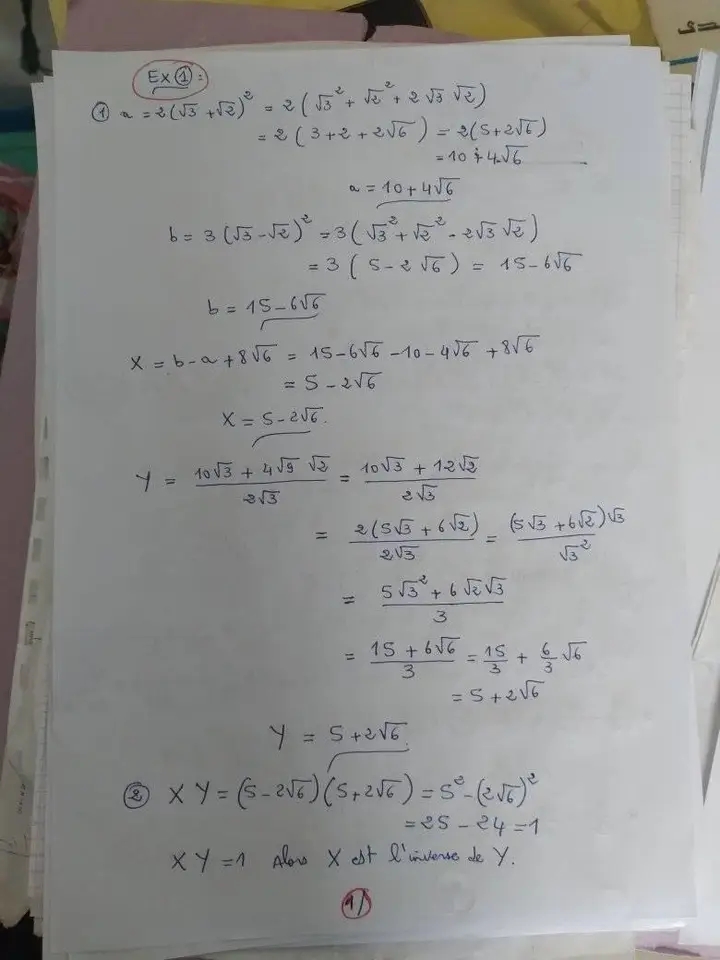 Ex ① :
① a = 2(√3 + √2)² = 2(√3² + √2² + 2√3 √2)
= 2(3+2+2√6) = 2(5+2√6)
= 10 + 4√6
a = 10 + 4√6
b = 3(√3 - √2)² = 3(√3² + √2² - 2√3 √2)
= 3(5 - 2√6) = 15 - 6√6
b = 15 - 6√6
X = b - a + 8√6 = 15 - 6√6 - 10 - 4√6 + 8√6
= 5 - 2√6
X = 5 - 2√6.
Y = (10√3 + 4√9 √2)/(2√3) = (10√3 + 12√2)/(2√3)
= 2(5√3 + 6√2)/(2√3) = (5√3 + 6√2)√3/√3²
= (5√3² + 6√2√3)/3
= (15 + 6√6)/3 = 15/3 + 6/3 √6
= 5 + 2√6
Y = 5 + 2√6.
② X Y = (5 - 2√6)(5 + 2√6) = 5² - (2√6)²
= 25 - 24 = 1
X Y = 1 Alors X est l'inverse de Y.
1/